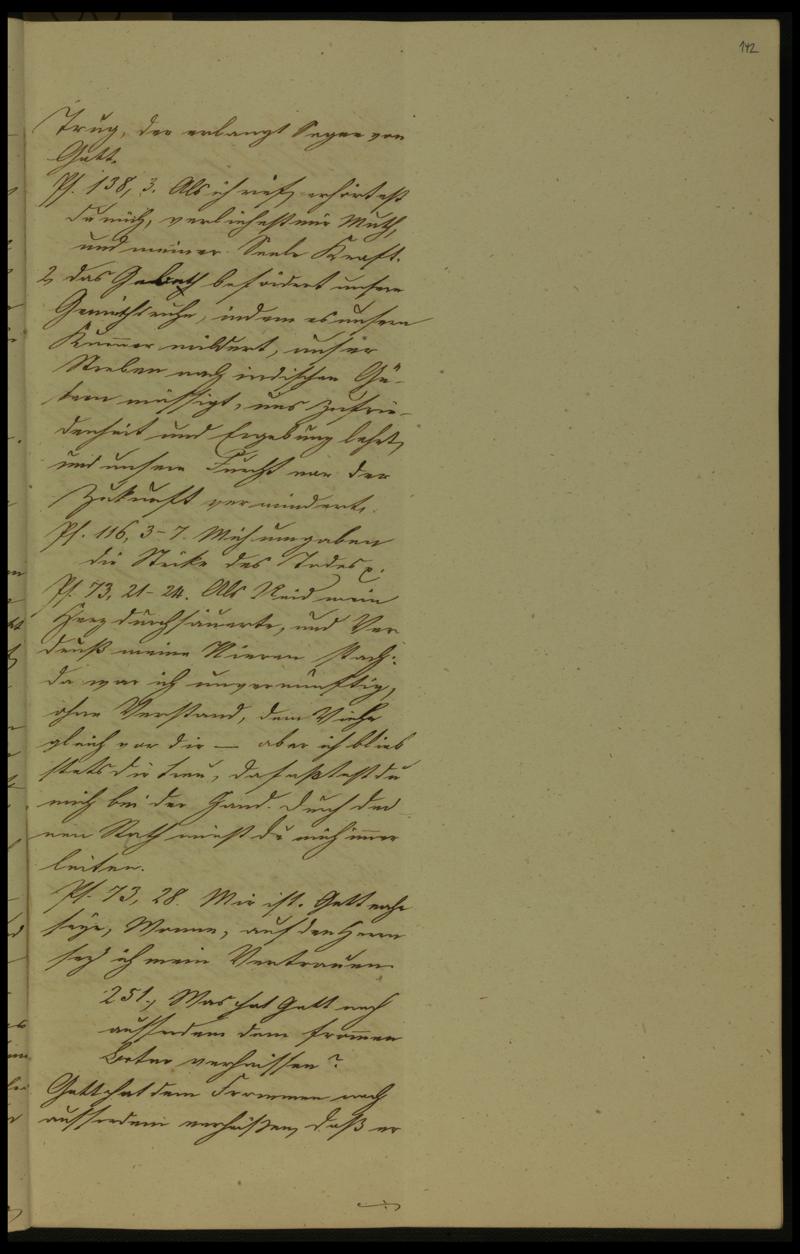 142
Trug, der erlangt Segen von
Gott.
Ps. 138, 3. Als ich rief, erhörtest
du mich, verliehest mir Muth,
und meiner Seele Kraft.
2, das Gebeth befördert unsere
Gemüthsruhe, indem es unsern
Kummer mildert, unser
Streben nach irdischen Gü-
tern mässigt, uns Zufrie-
denheit und Ergebung lehrt,
und unsere Furcht vor der
Zukunft vermindert.
Ps. 116, 3-7. Mich umgaben
die Stricke des Todes
Ps. 73, 21-24. Als Neid mein
Herz durchsäuerte, und Ver-
druß meine Nieren stach:
da war ich unvernünftig,
ohne Verstand, dem Viehe
gleich vor dir — aber ich blieb
stets dir treu, da faßtest du
mich bei der Hand. Durch dei-
nen Rath wirst du mich immer
leiten.
Ps. 73, 28. Mir ist, Gott nahe
seyn, Wonne, auf den Herrn
setz ich mein Vertrauen.
251., Was hat Gott noch
ausserdem dem frommen
Beter verheissen?
Gott hat dem Frommen noch
ausserdem verheißen, daß er